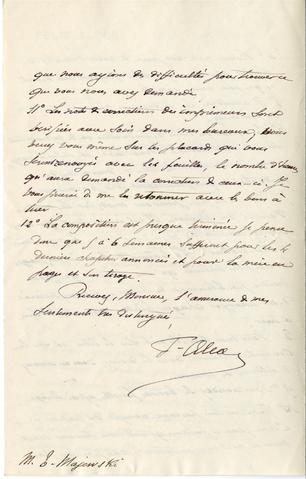 que nous ayions des difficultés pour trouver ce
que vous nous avez demandé
11° Les notes de correction des imprimeurs sont
vérifiées avec soin dans mes bureaux, vous
verrez vous même sur les placards qui vous
seront renvoyés avec les feuilles, le nombre d'heures
qu'aura demandé la correction de ceux-ci. Je
vous prierai de me les retourner avec le bon à
tirer
12° La composition est presque terminée je pense
donc que 5 à 6 semaines suffiront pour les
derniers chapitres annoncés et pour la mise en
pages et son tirage.
Recevez, Monsieur, l'assurance de mes
sentiments très distingués.
F. Alcan
M. E. Majewski